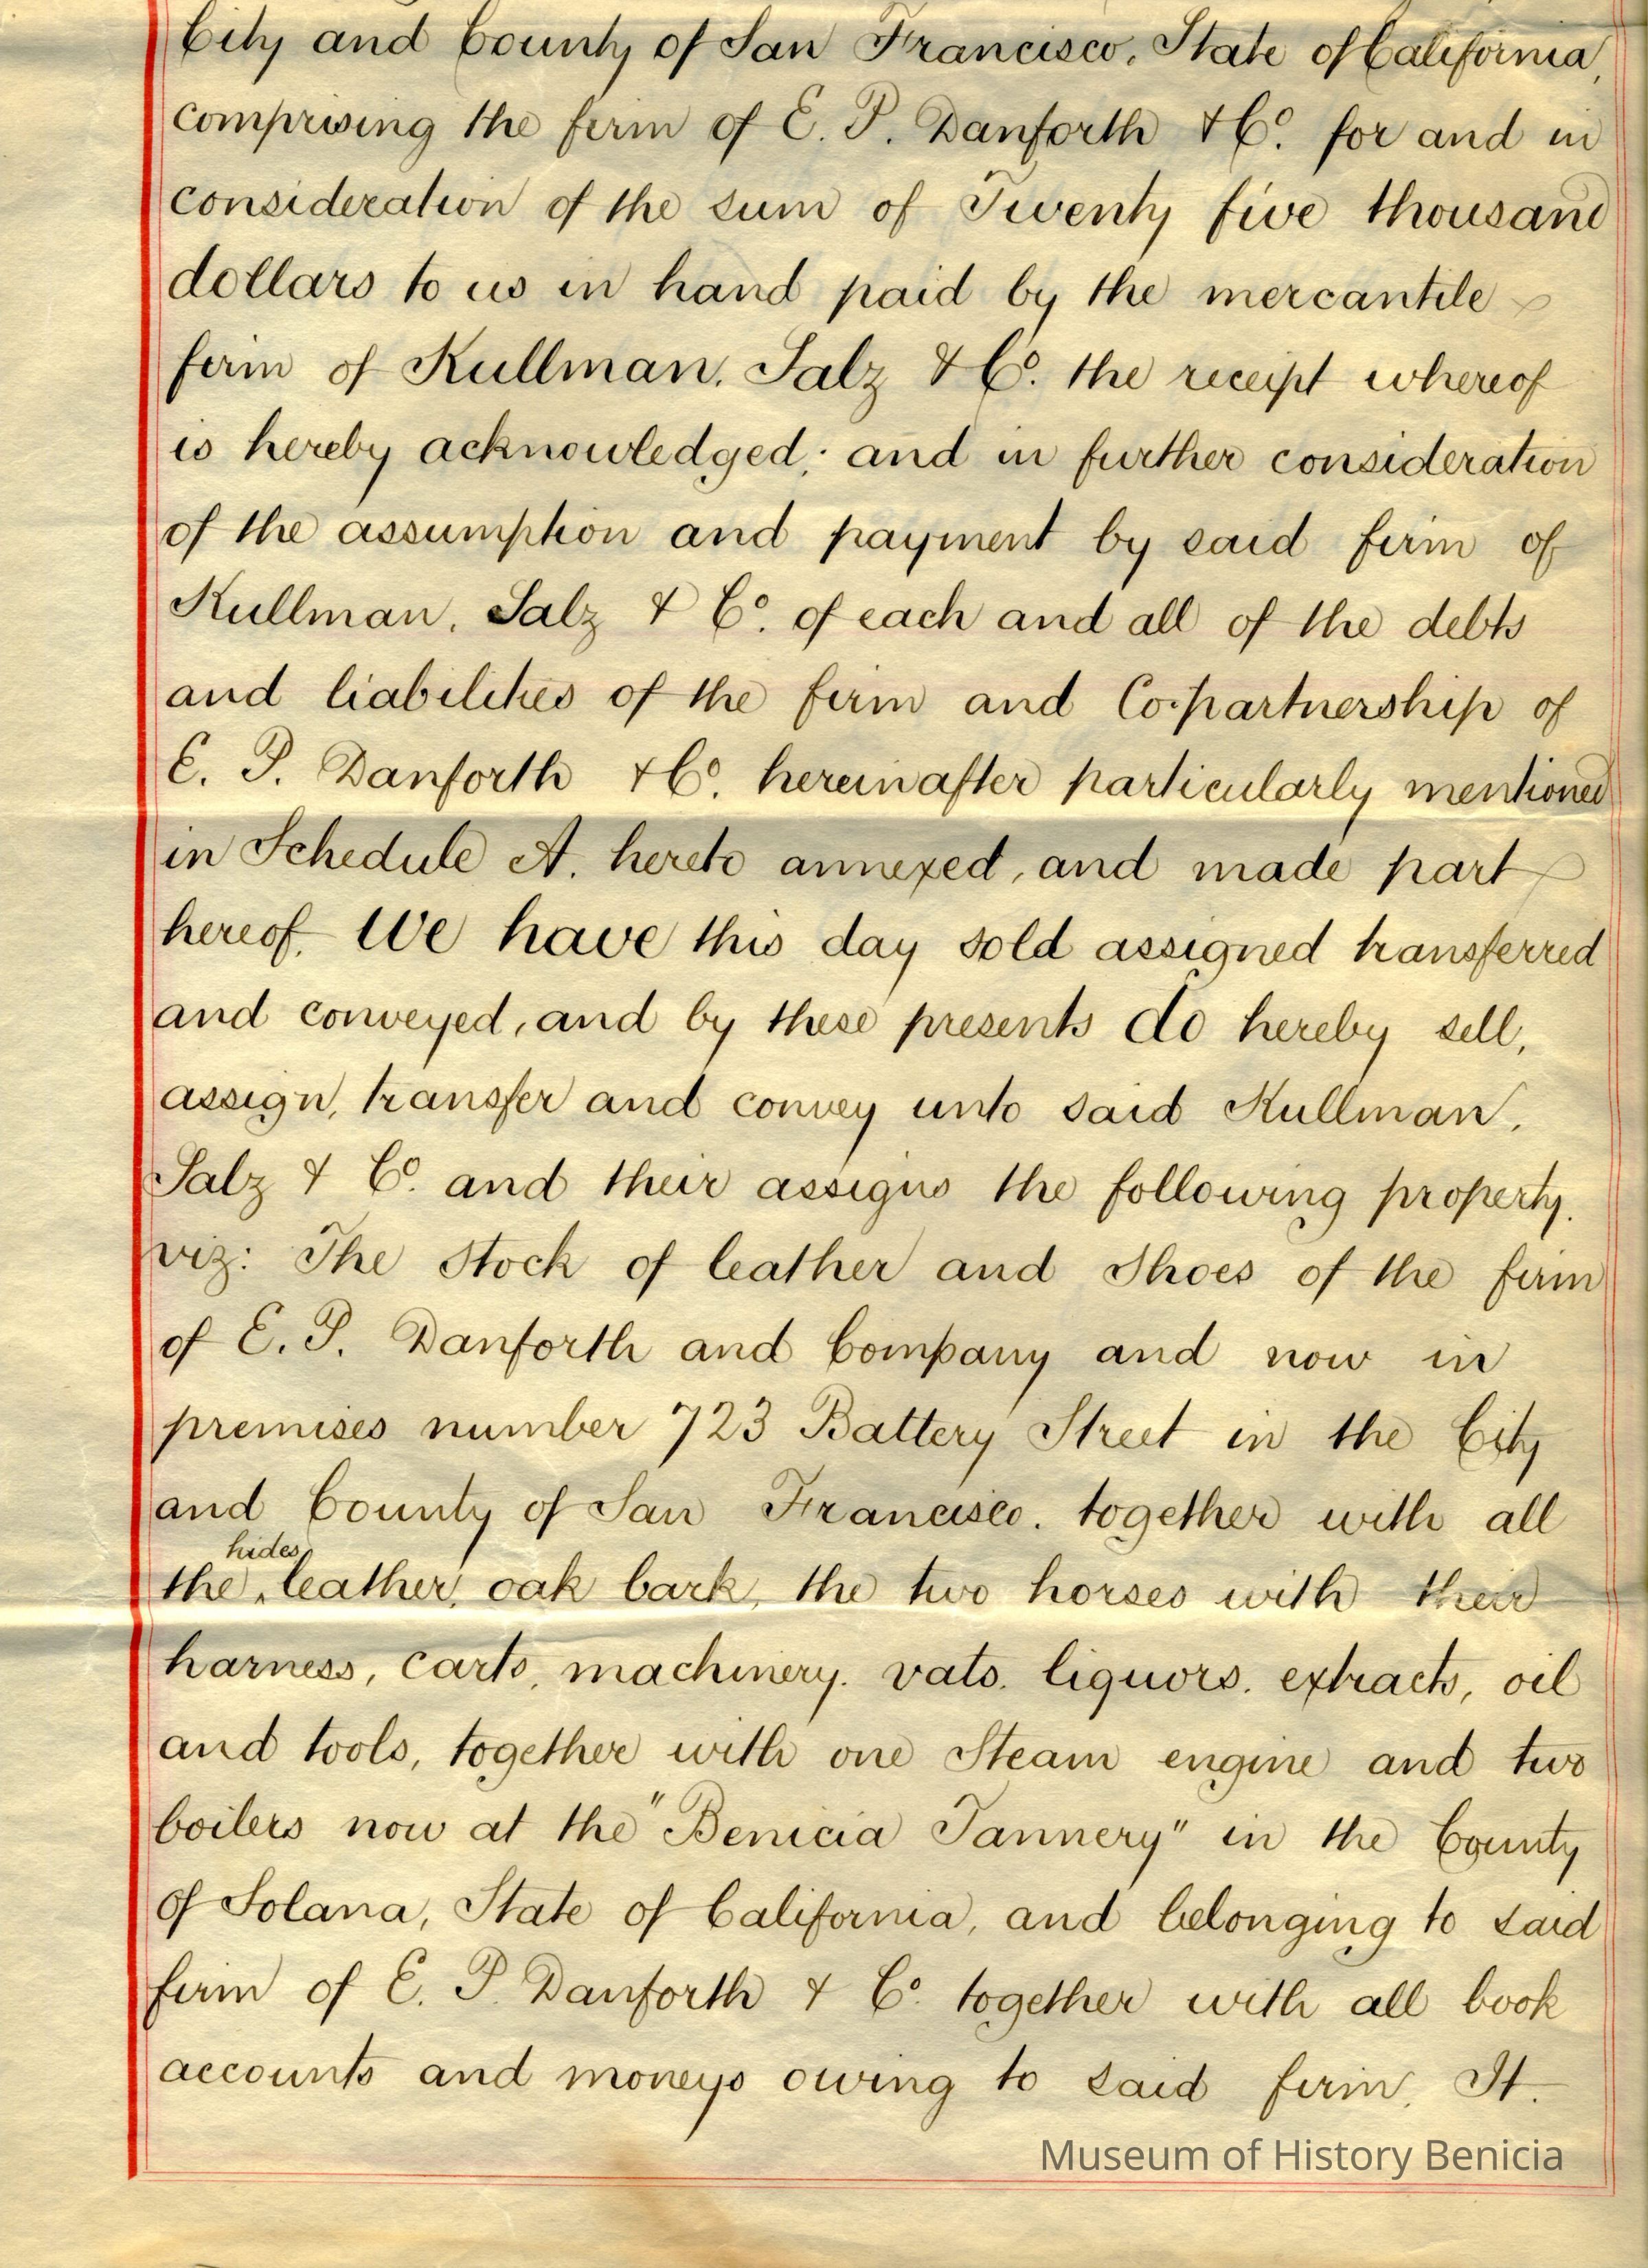 City and County of San Francisco, State of California,
comprising the firm of E. P. Danforth & Co. for and in
consideration of the sum of Twenty five thousand
dollars to us in hand paid by the mercantile
firm of Kullman, Salz & Co. the receipt whereof
is hereby acknowledged; and in further consideration
of the assumption and payment by said firm of
Kullman, Salz & Co. of each and all of the debts
and liabilities of the firm and Co-partnership of
E. P. Danforth & Co. hereinafter particularly mentioned
in Schedule A. hereto annexed, and made part
hereof. We have this day sold assigned transferred
and conveyed, and by these presents do hereby sell,
assign, transfer and convey unto said Kullman,
Salz & Co. and their assigns the following property.
viz: The stock of leather and shoes of the firm
of E. P. Danforth and Company and now in
premises number 723 Battery Street in the City
and County of San Francisco. together with all
hides
the leather, oak bark, the two horses with their
harness, carts, machinery. vats. liquors. extracts, oil
and tools, together with one Steam engine and two
boilers now at the "Benicia Tannery" in the County
of Solana, State of California, and belonging to said
firm of E. P. Danforth & Co. together with all book
accounts and moneys owing to said firm. It.
Museum of History Benicia